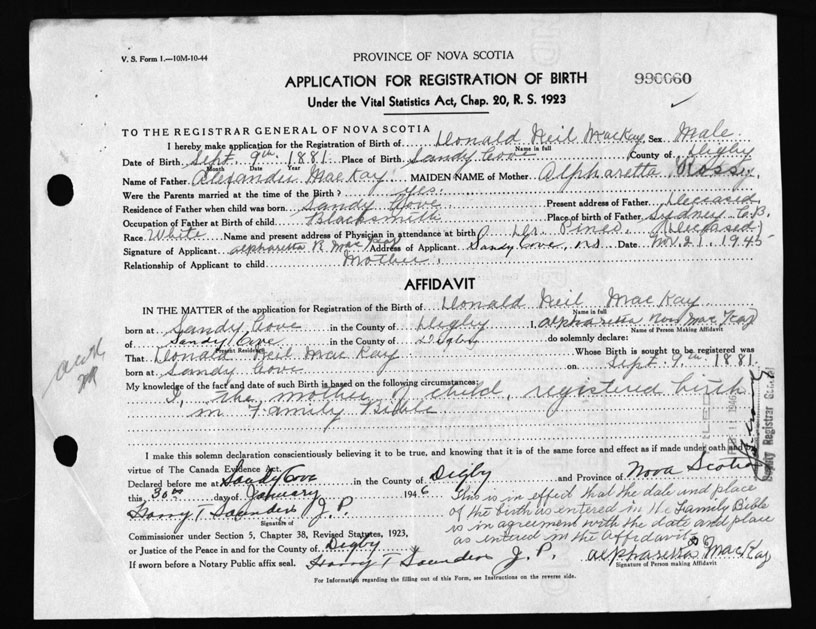 V. S. Form 1.—10M-10-44
PROVINCE OF NOVA SCOTIA
APPLICATION FOR REGISTRATION OF BIRTH
990060
Under the Vital Statistics Act, Chap. 20, R. S. 1923
TO THE REGISTRAR GENERAL OF NOVA SCOTIA
I hereby make application for the Registration of Birth of Donald Neil MacKay Sex Male
Name in full
Date of Birth Sept. 9th 1881 Place of Birth Sandy Cove County of Digby
Month Date Year
Name of Father Alexander MacKay MAIDEN NAME of Mother Alpharetta
Were the Parents married at the time of the Birth? Yes.
Residence of Father when child was born Sandy Cove Present address of Father Deceased
Occupation of Father at Birth of child Blacksmith Place of birth of Father Sydney C.B.
Race White Name and present address of Physician in attendance at birth Dr. Pines. (Deceased)
Signature of Applicant alpharetta R MacKay Address of Applicant Sandy Cove, NS Date Nov. 21. 1945
Relationship of Applicant to child Mother.
AFFIDAVIT
IN THE MATTER of the application for Registration of the Birth of Donald Neil MacKay
Name in full
born at Sandy Cove in the County of Digby I, alpharetta MacKay
Name of Person Making Affidavit
of Sandy Cove in the County of Digby do solemnly declare:
Present Residence
That Donald Neil MacKay Whose Birth is sought to be registered was
born at Sandy Cove on Sept 9th 1881.
My knowledge of the fact and date of such Birth is based on the following circumstances:
I, the mother of child, registered birth
in Family Bible
I make this solemn declaration conscientiously believing it to be true, and knowing that it is of the same force and effect as if made under oath and
virtue of The Canada Evidence Act.
Declared before me at Sandy Cove in the County of Digby and Province of Nova Scotia
this 30th day of January 1946
Harry T Saunders J.P.
Signature of
This is in effect that the date and place
of the birth as entered in the Family Bible
is in agreement with the date and place
as entered in the Affidavit
Commissioner under Section 5, Chapter 38, Revised Statutes, 1923,
or Justice of the Peace in and for the County of Digby
If sworn before a Notary Public affix seal. Harry T Saunders J.P.
alpharetta R MacKay
Signature of Person making Affidavit
For Information regarding the filling out of this Form, see Instructions on the reverse side.
Deputy Registrar General